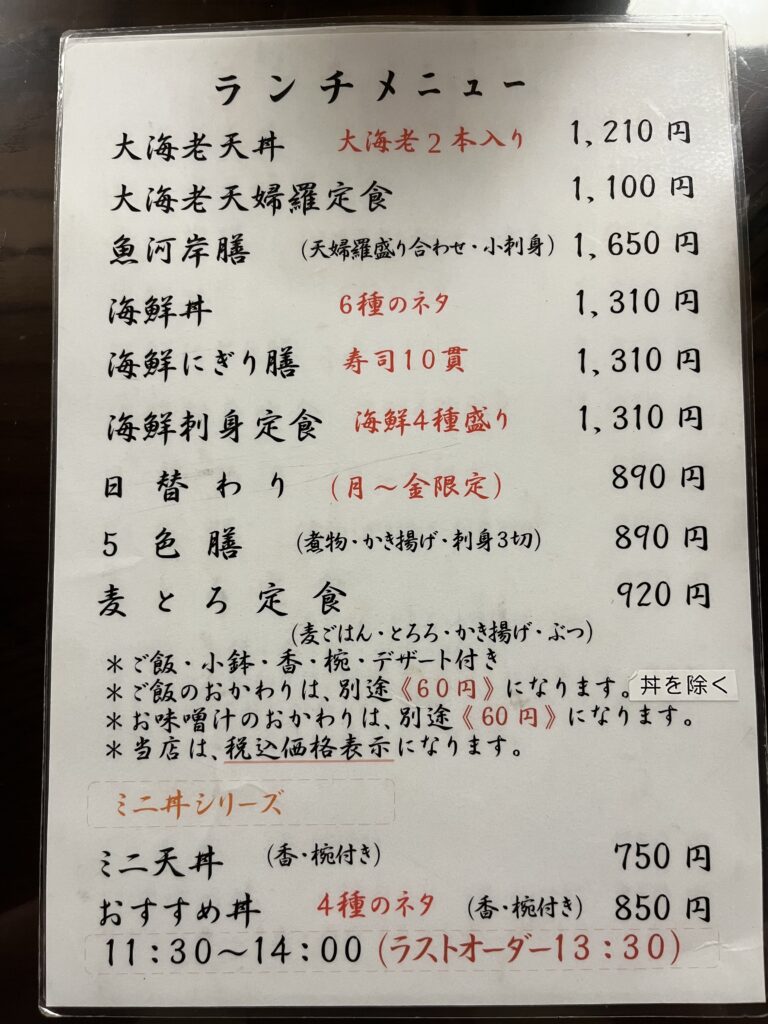 ランチメニュー
大海老天丼 大海老2本入り 1,210円
大海老天婦羅定食 1,100円
魚河岸膳 (天婦羅盛り合わせ・小刺身) 1,650円
海鮮丼 6種のネタ 1,310円
海鮮にぎり膳 寿司10貫 1,310円
海鮮刺身定食 海鮮4種盛り 1,310円
日替わり (月～金限定) 890円
5色膳 (煮物・かき揚げ・刺身3切) 890円
麦とろ定食 920円
(麦ごはん・とろろ・かき揚げ・ぶつ)
＊ご飯・小鉢・香・椀・デザート付き
＊ご飯のおかわりは、別途《60円》になります。丼を除く
＊お味噌汁のおかわりは、別途《60円》になります。
＊当店は、税込価格表示になります。
ミニ丼シリーズ
ミニ天丼 (香・椀付き) 750円
おすすめ丼 4種のネタ (香・椀付き) 850円
11：30～14：00(ラストオーダー13：30)